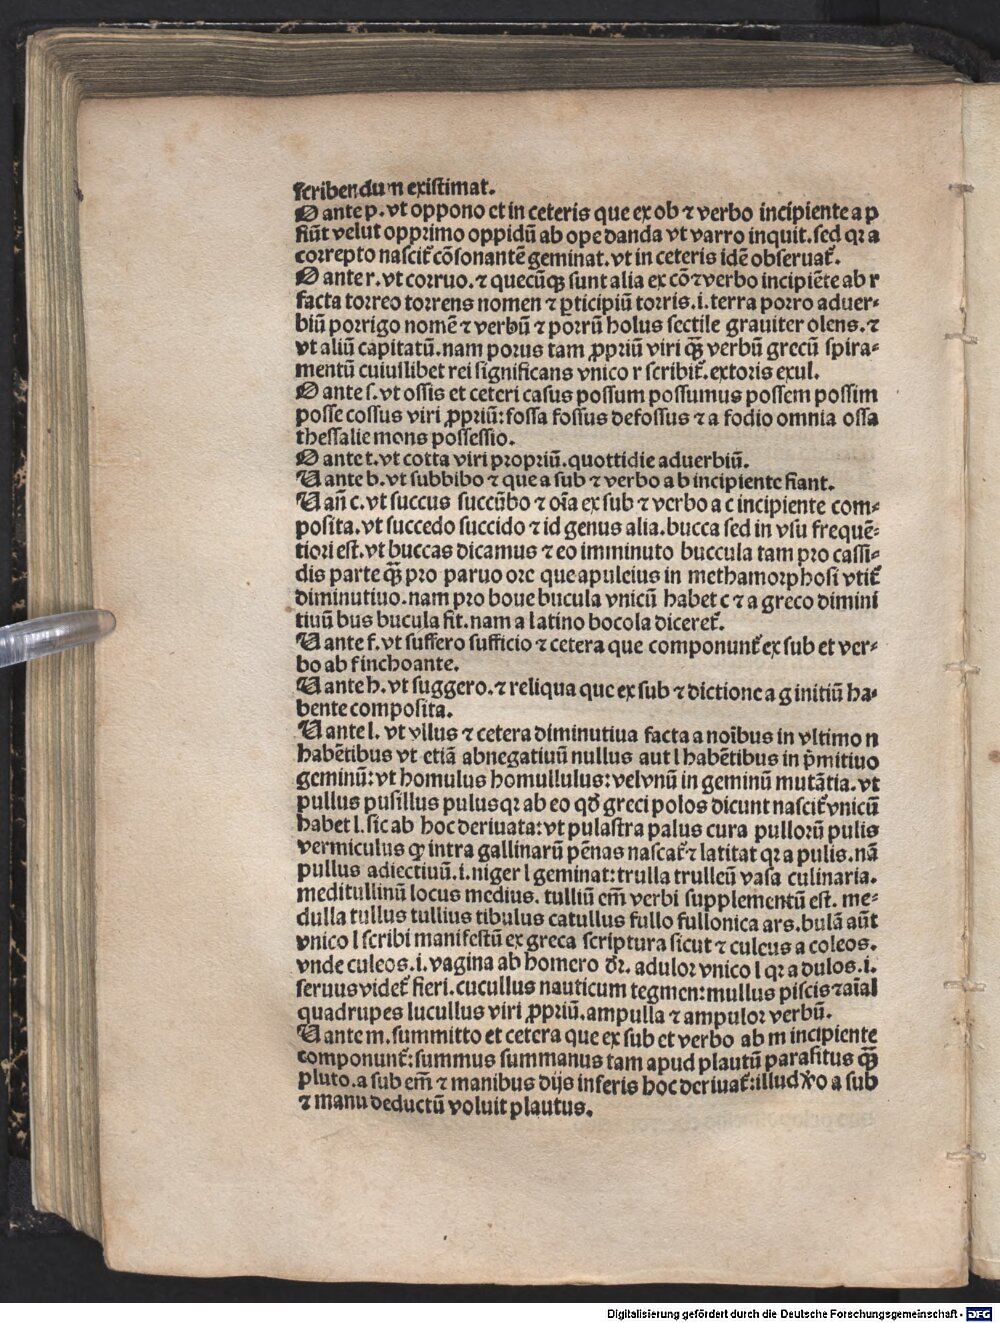 scribendum existimat.
O ante p. vt oppono et in ceteris que ex ob ⁊ verbo incipiente a p
fiūt velut opprimo oppidū ab ope danda vt varro inquit. sed qꝛ a
correpto nascit᷑ cōsonantē geminat. vt in ceteris idē obseruat᷑.
O ante r. vt corruo. ⁊ quecūqꝫ sunt alia ex cō ⁊ verbo incipiēte ab r
facta torreo torrens nomen ⁊ ꝑticipiū torris .i. terra porro aduer⸗
biū porrigo nomē ⁊ verbū ⁊ porrū holus sectile grauiter olens. ⁊
vt aliū capitatū. nam porus tam ꝓpriū viri qꝫ̄ verbū grecū spira⸗
mentū cuiuslibet rei significans vnico r scribit᷑. extoris exul.
O ante s. vt ossis et ceteri casus possum possumus possem possim
posse cossus viri ꝓpriū: fossa fossus defossus ⁊ a fodio omnia ossa
thessalie mons possessio.
O ante t. vt cotta viri propriū. quottidie aduerbiū.
U ante b. vt subbibo ⁊ que a sub ⁊ verbo a b incipiente fiant.
U añ c. vt succus succūbo ⁊ oīa ex sub ⁊ verbo a c incipiente com⸗
posita. vt succedo succido ⁊ id genus alia. bucca sed in vsu frequē⸗
tiori est. vt buccas dicamus ⁊ eo imminuto buccula tam pro cassi⸗
dis parte qꝫ̄ pro paruo ore que apuleius in methamorphosi vtit᷑
diminutiuo. nam pro boue bucula vnicū habet c ⁊ a greco dimini
tiuū bus bucula fit. nam a latino bocola diceret᷑.
U ante f. vt suffero sufficio ⁊ cetera que componunt᷑ ex sub et ver⸗
bo ab f inchoante.
U ante h. vt suggero. ⁊ reliqua que ex sub ⁊ dictione a g initiū ha⸗
bente composita.
U ante l. vt vllus ⁊ cetera diminutiua facta a noībus in vltimo n
habētibus vt etiā abnegatiuū nullus aut l habētibus in pͥmitiuo
geminū: vt homulus homullulus: vel vnū in geminū mutātia. vt
pullus pusillus pulus qꝛ ab eo qđ greci polos dicunt nascit᷑ vnicū
habet l. sic ab hoc deriuata: vt pulastra palus cura pullorū pulis
vermiculus ꝙ intra gallinarū pēnas nascat᷑ ⁊ latitat qꝛ a pulis. nā
pullus adiectiuū .i. niger l geminat: trulla trulleū vasa culinaria.
meditullinū locus medius. tulliū em̄ verbi supplementū est. me⸗
dulla tullus tullius tibulus catullus fullo fullonica ars. bulā aūt
vnico l scribi manifestū ex greca scriptura sicut ⁊ culeus a coleos.
vnde culeos .i. vagina ab homero dr̄. adulor vnico l qꝛ a dulos .i.
seruus videt᷑ fieri. cucullus nauticum tegmen: mullus piscis ⁊ aīal
quadrupes lucullus viri ꝓpriū. ampulla ⁊ ampulor verbū.
U ante m. summitto et cetera que ex sub et verbo ab m incipiente
componunt᷑: summus summanus tam apud plautū parasitus qꝫ̄
pluto. a sub em̄ ⁊ manibus dijs inferis hoc deriuat᷑: illud ꝟo a sub
⁊ manu deductū voluit plautus.
Digitalisierung gefördert durch die Deutsche Forschungsgemeinschaft - DFG